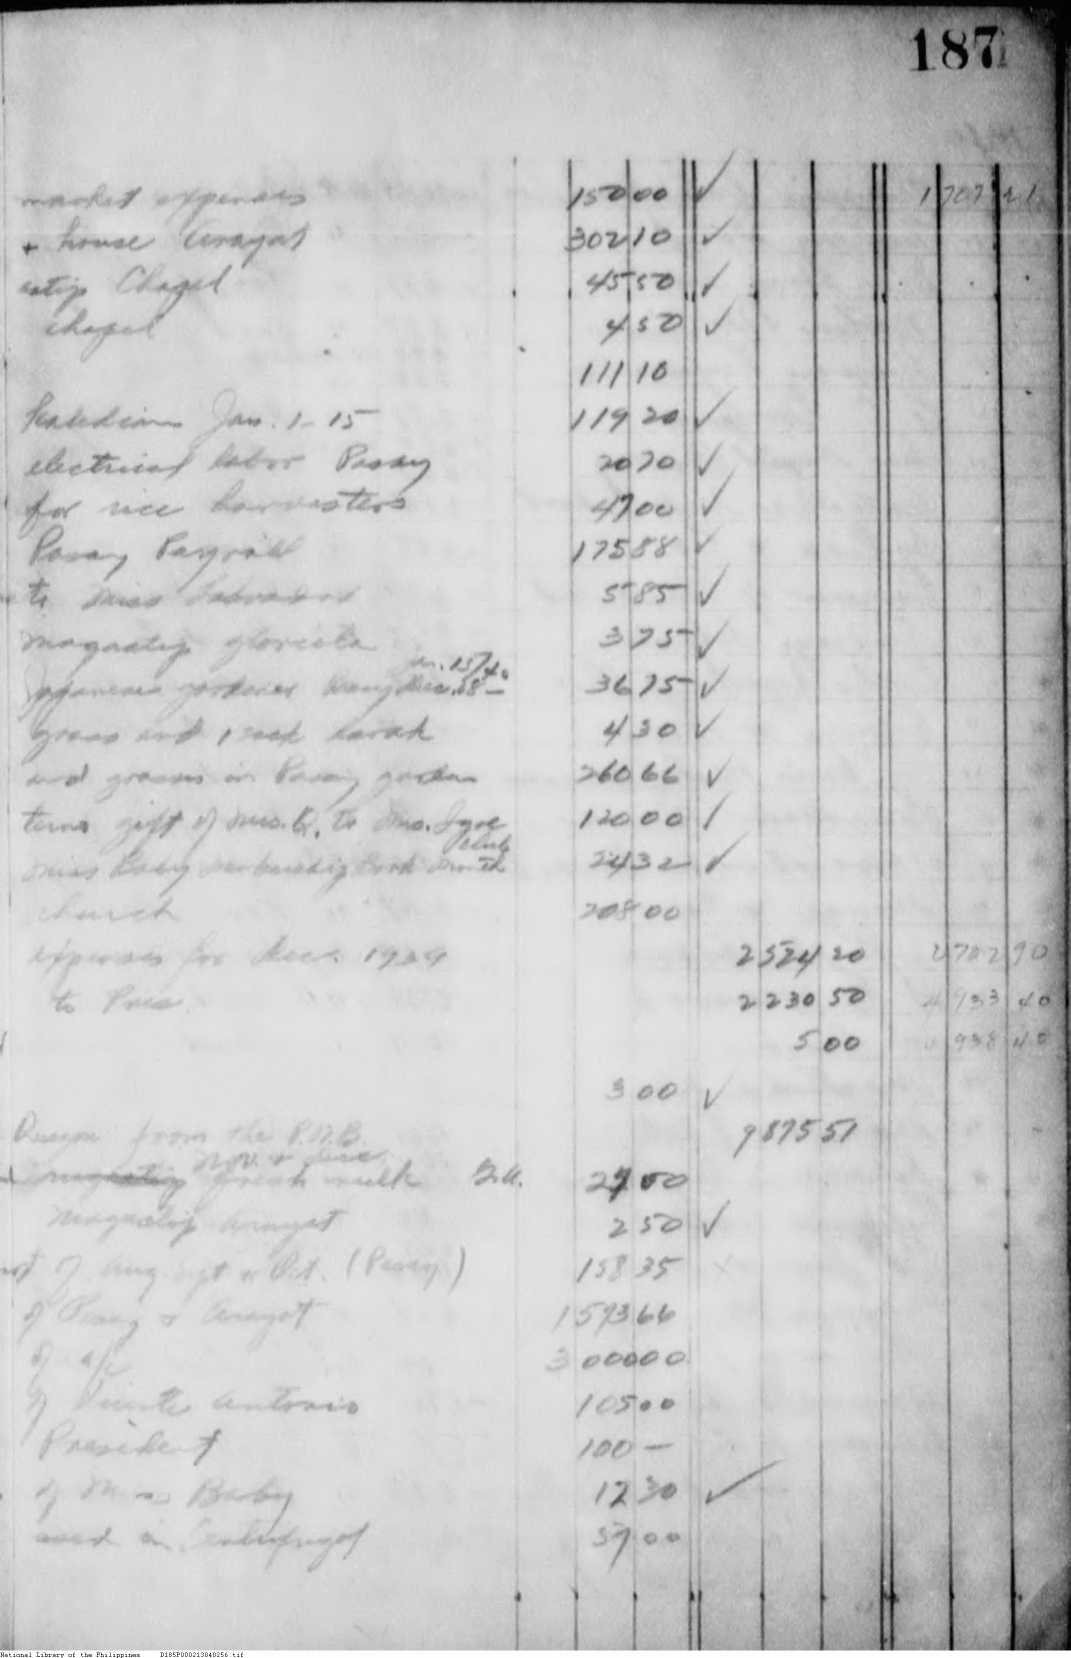 187
market expenses 150 00 ✓ 1 707 21
+ house Arayat 302 10 ✓
Chapel 45 50 ✓
chapel 4 50 ✓
111 10
Jan. 1-15 119 20 ✓
electrical labor Pasay 20 70 ✓
for rice harvesters 47 00 ✓
Pasay Payroll 175 88 ✓
to Miss Labrador 5 85 ✓
Magsatip glorieta 3 75 ✓
Jan. 15/40
Japanese gardener Dec. 18 — 36 75 ✓
grass and 1 sack darak 4 30 ✓
and grasses in Pasay garden 260 66 ✓
gift of Mrs. Q. to Mrs. 120 00 /
Club
Miss Baby membership Book Month 24 32 ✓
church 208 00
expenses for Dec. 1939 2 524 20 2 702 90
to Pres. 2 230 50 4 933 40
5 00 4 938 40
3 00 ✓
Quezon from the P.N.B. 9 875 51
Nov. & Dec.
fresh milk 27 50
Arayat 2 50 ✓
of Aug. Sept. & Oct. (Pasay) 158 35
of Pasay & Arayat 1 593 66
of a/c 3 000 00
of Vicente Antonio 105 00
President 100 —
of Miss Baby 12 30 ✓
used in Centrifugal 57 00
National Library of the Philippines D185P000213040256.tif